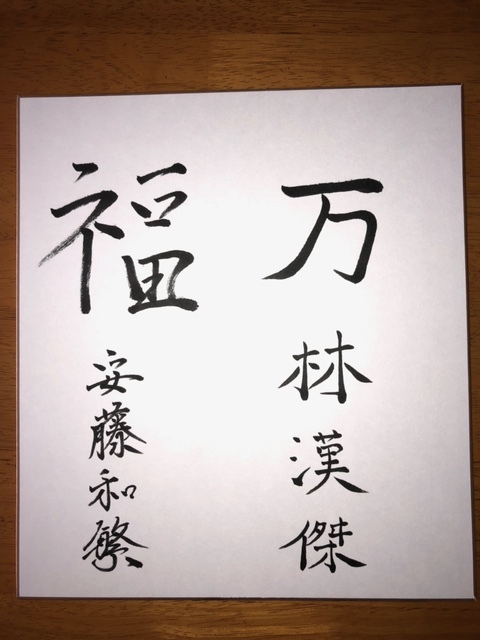 万
林漢傑
福
安藤和繁